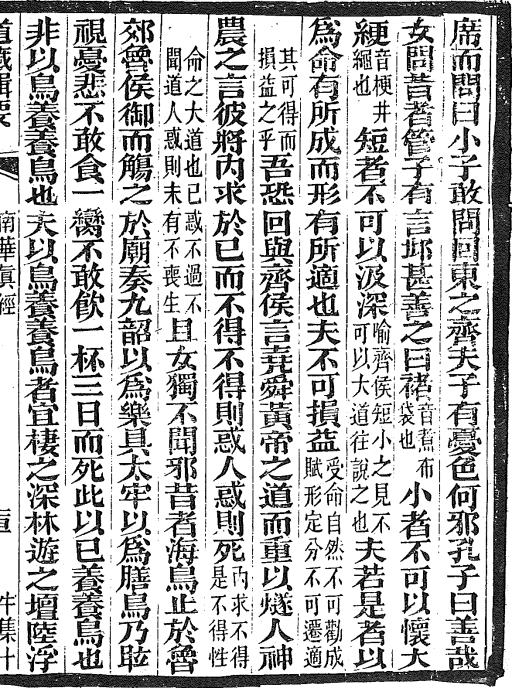 席而問曰小子敢問回東之齊夫子有憂色何邪孔子曰善哉
女問昔者管子有言邱甚善之曰褚音煮布袋也小者不可以懷大
綆音梗井繩也短者不可以汲深喻齊侯短小之見不可以大道往說之也夫若是者以
爲命有所成而形有所適也夫不可損益受命自然不可勸成賦形定分不可遷適
其可得而損益之乎吾恐回與齊侯言堯舜黃帝之道而重以燧人神
農之言彼將內求於已而不得不得則惑人惑則死內求不得是不得性
命之大道也已惑不過不聞道人惑則未有不喪生且女獨不聞邪昔者海鳥止於魯
郊魯侯御而觴之於廟奏九韶以爲樂具太牢以爲膳鳥乃眩
視憂悲不敢食一臠不敢飲一杯三日而死此以已養養鳥也
非以鳥養養鳥也夫以鳥養養鳥者宜棲之深林遊之壇陸浮
道藏輯要 南華眞經